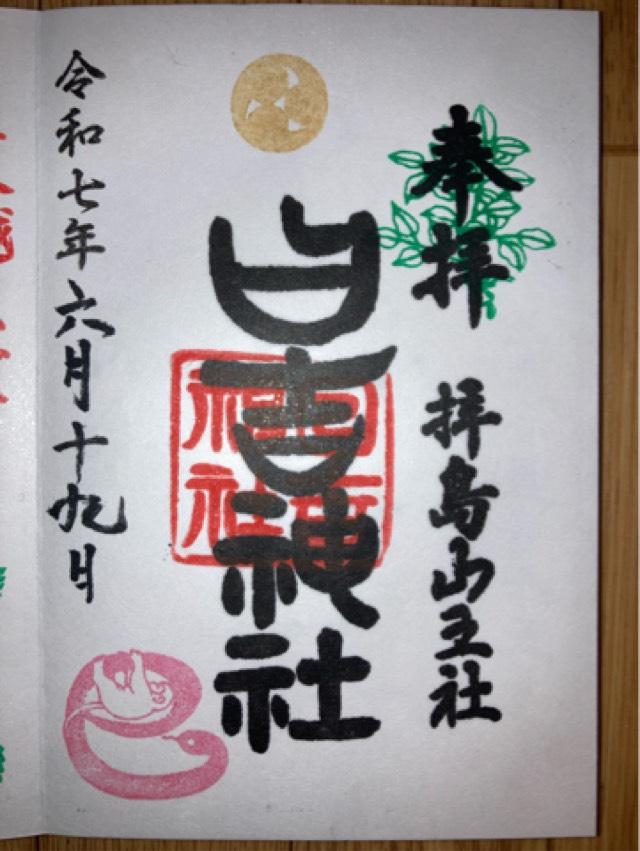 奉拝
拝島山王社
日吉神社
日吉神社
令和七年六月十九日